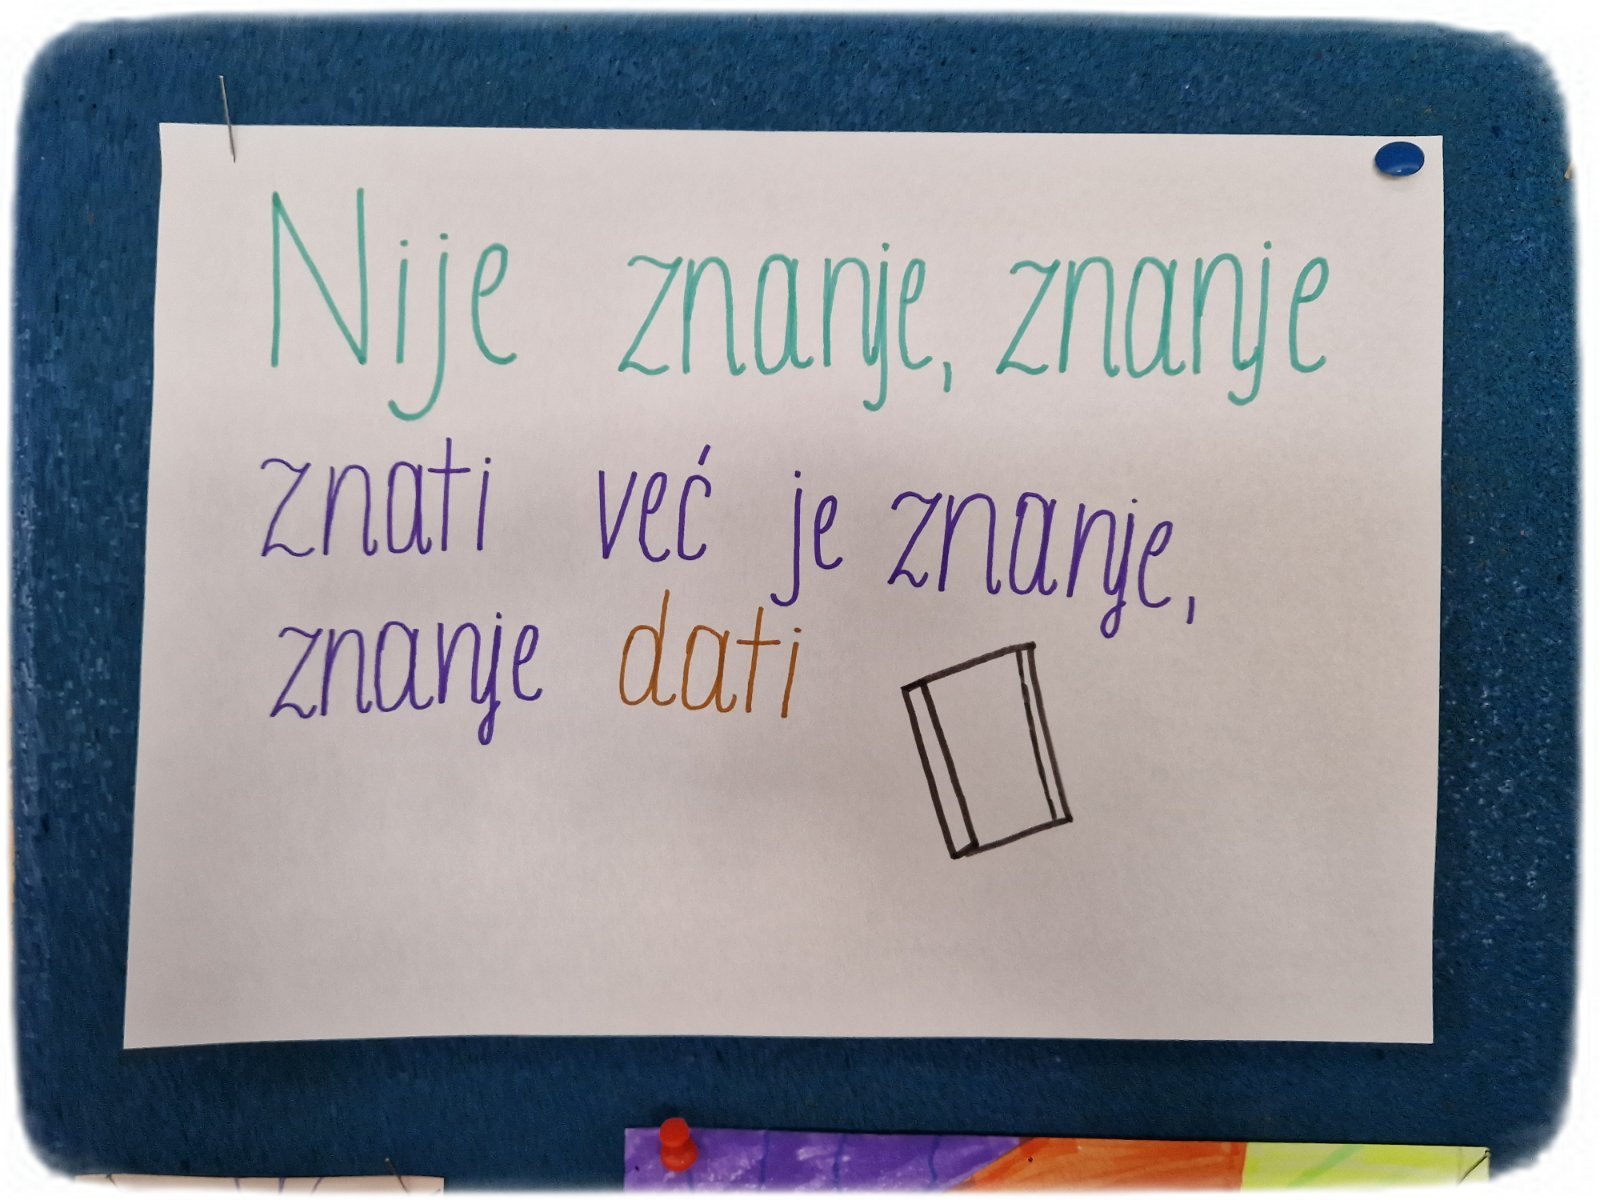 Nije znanje, znanje
znati već je znanje,
znanje dati